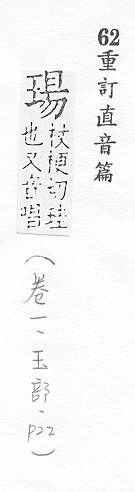 62重訂直音篇
瑒
杖梗切珪
也又音唱
（卷一、玉部、P22）